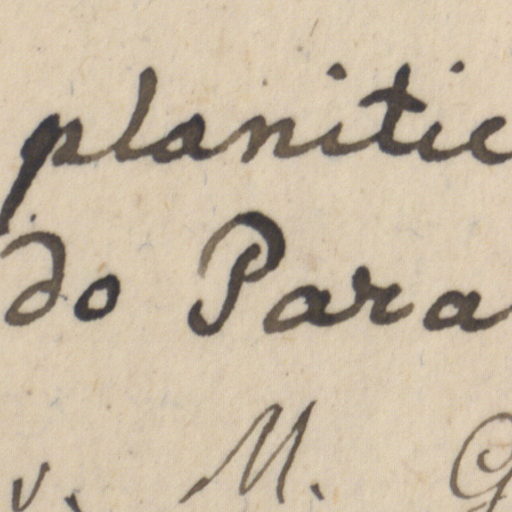 planitic
do Para
v. M. G